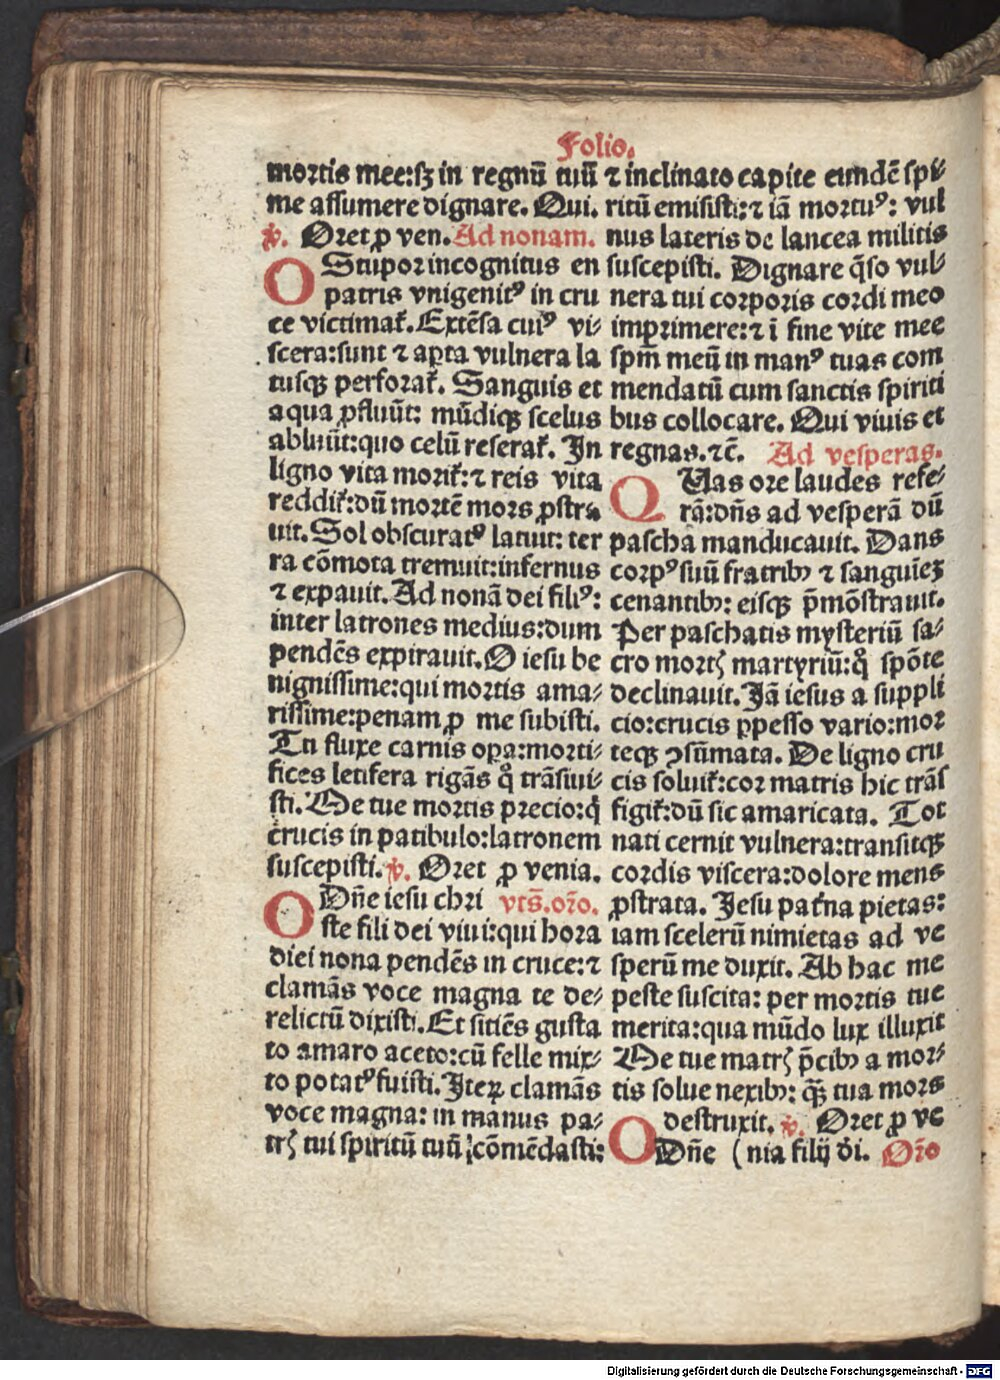 Folio.
mortis mee:sꝫ in regnū tuū
me assumere dignare. Qui.
℣. Oret ꝓ ven. Ad nonam.
O Stupor incognitus en
patris vnigenitꝰ in cru
ce victimat᷑. Extēsa cuiꝰ vi⸗
scera:sunt ⁊ aꝑta vulnera la
tusqꝫ perforat᷑. Sanguis et
aqua ꝓfluūt: mūdiqꝫ scelus
abluūt:quo celū reserat᷑. In
ligno vita morit᷑:⁊ reis vita
reddit᷑:dū mortē mors ꝓstra
uit. Sol obscuratꝰ latuit: ter
ra cōmota tremuit:infernus
⁊ expauit. Ad nonā dei filiꝰ:
inter latrones medius:dum
pendēs expirauit. O iesu be
nignissime:qui mortis ama⸗
rissime:penam ꝓ me subisti.
Tu fluxe carnis oꝑa:morti⸗
fices letifera rigās qͦ trāsiui⸗
sti. Me tue mortis precio:qͥ
crucis in patibulo:latronem
suscepisti. ℣. Oret ꝓ venia.
O Dn̄e iesu chri vts̄. or̄o.
ste fili dei viui:qui hora
diei nona pendēs in cruce:⁊
clamās voce magna te de⸗
relictū dixisti. Et sitiēs gusta
to amaro aceto:cū felle mix⸗
to potatꝰ fuisti. Iteꝝ clamās
voce magna: in manus pa⸗
trꝭ tui spiritū tuū cōmēdasti:
⁊ inclinato capite eundē spi⸗
ritū emisisti:⁊ iā mortuꝰ: vul
nus lateris de lancea militis
suscepisti. Dignare q̄so vul⸗
nera tui corporis cordi meo
imprimere:⁊ ī fine vite mee
spm̄ meū in manꝰ tuas com
mendatū cum sanctis spiriti
bus collocare. Qui viuis et
regnas.⁊c̄. Ad vesperas.
Q Uas ore laudes refe⸗
rā:dn̄s ad vesperā dū
pascha manducauit. Dans
corpꝰ suū fratribꝫ ⁊ sanguīeꝫ
cenantibꝫ: eisqꝫ p̄mōstrauit.
Per paschatis mysteriū sa⸗
cro mortꝭ martyriū:qͦ spōte
declinauit. Iā iesus a suppli
cio:crucis ꝑpesso vario:mor
teqꝫ ꝯsūmata. De ligno cru
cis soluit᷑:cor matris hic trās
figit᷑:dū sic amaricata. Tot
nati cernit vulnera:transitqꝫ
cordis viscera:dolore mens
ꝓstrata. Iesu pat̄na pietas:
iam scelerū nimietas ad ve
sperū me duxit. Ab hac me
peste suscita: per mortis tue
merita:qua mūdo lux illuxit
Me tue matrꝭ p̄cibꝫ a mor⸗
tis solue nexibꝫ: qꝫ tua mors
destruxit. ℣. Oret ꝓ ve
O Dn̄e (nia filij dī. Or̄o
Digitalisierung gefördert durch die Deutsche Forschungsgemeinschaft - DFG